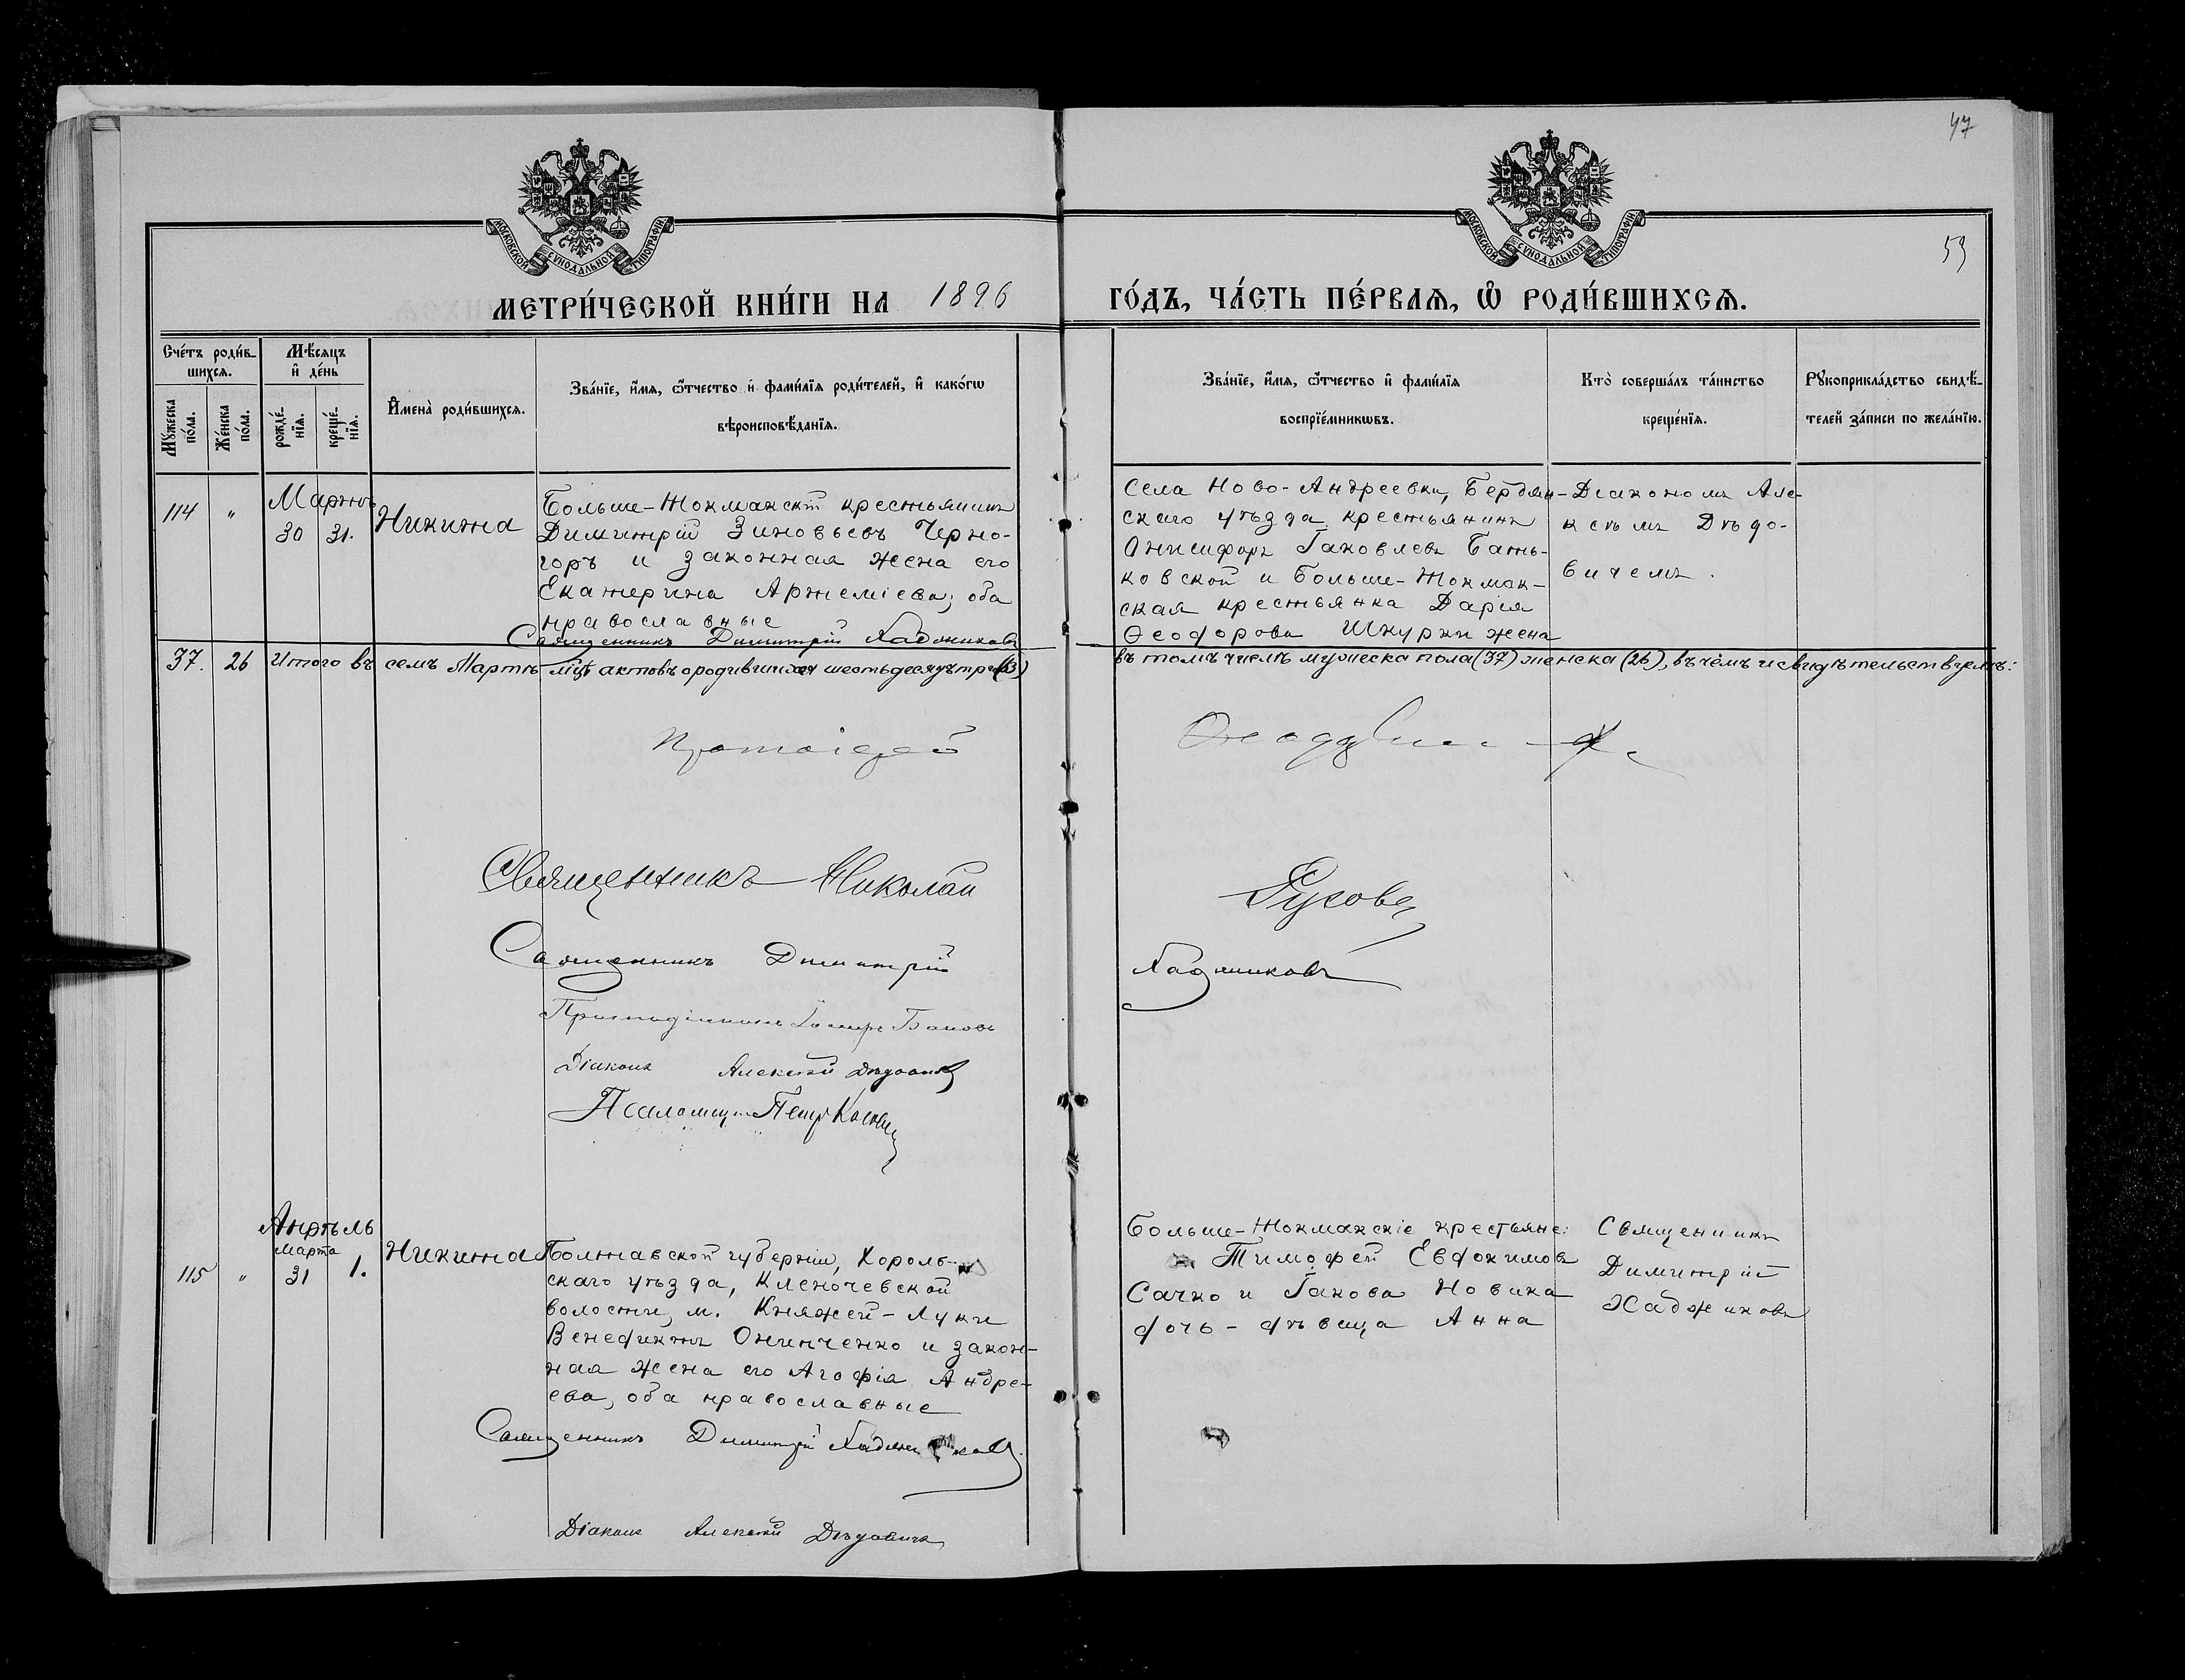 47
59
МОСКОВСКОЙ СѴНОДАЛЬНОЙ ТИПОГРАФІИ
МОСКОВСКОЙ СѴНОДАЛЬНОЙ ТИПОГРАФІИ
МЕТРИ́ЧЕСКОЙ КНИ́ГИ НА 1896 ГО́ДЪ, ЧА́СТЬ ПЕ́РВАѦ, Ѡ҆ РОДИ́ВШИХСѦ.
Сче́тъ роди́в-
шихсѧ.
Мѣ́сѧцъ
и҆ де́нь
Мꙋ́жеска
по́ла.
Же́нска
по́ла.
рожде́-
нїѧ.
креще́-
нїѧ.
И҆мена̀ роди́вшихсѧ.
Зва́нїе, и҆́мѧ, ѻ҆́тчество и҆ фами́лїѧ роди́телей, и҆ како́гѡ
вѣроисповѣ́данїѧ.
Зва́нїе, и҆́мѧ, ѻ҆́тчество и҆ фами́лїѧ
воспрїе́мникѡвъ.
Кто̀ соверша́лъ та́инство
креще́нїѧ.
Рꙋкоприкла́дство свидѣ́-
телей за́писи по жела́нїю.
114 " Мартъ
30 31. Никита
Больше-Токмакскій крестьянинъ
Димитрій Зиновьевъ Черно-
горъ и законная жена его
Екатерина Артеміева, оба
православные
Священникъ Димитрій Хаджиновъ
Села Ново-Андреевки, Бердян-
скаго уѣзда крестьянинъ
Онисифоръ Іаковлевъ Бать-
ковской и Больше-Токмак-
ская крестьянка Дарія
Ѳеодорова Шкурки жена
Діакономъ Але-
ксѣемъ Дѣдо-
вичемъ.
37. 26 Итого въ семъ Мартѣ мцѣ актовъ о родившихся шестьдесятъ три (63)
въ томъ числѣ мужеска пола (37) женска (26), въ чемъ и свидѣтельствуемъ:
Протоіерей
Священникъ Николай
Священникъ Димитрій Хаджиновъ
Діаконъ Алексѣй Дѣдовичъ
Псаломщ Петръ
Апрѣль
Марта
115 " 31 1. Никита
Полтавской губерніи, Король-
скаго уѣзда, Кленочевской
волости, м. Княжей-Луки
Венедиктъ Онипченко и закон-
ная жена его Агафія Андре-
ева, оба православные
Священникъ Димитрій Хаджиновъ
Діаконъ Алексѣй Дѣдовичъ
Больше-Токмакскіе крестьяне:
Тимофей Евдокимовъ
Сачко и Іакова Новика
дочь-дѣвица Анна
Священникъ
Димитрій
Хаджиновъ